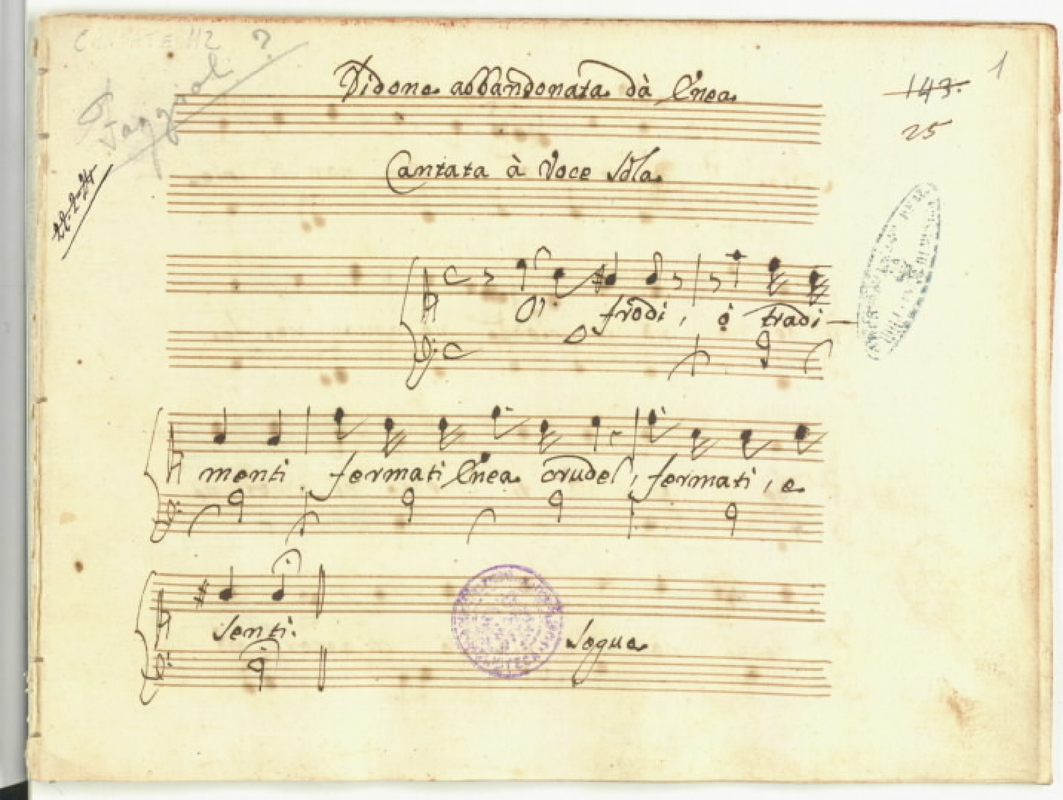 CANTATE 112
1
?
143.
25
Didone abbandonata dà Enea
Cantata à Voce Sola
Oi frodi, ò tradi-
menti fermati Enea crudel, fermati, e
senti.
Segue